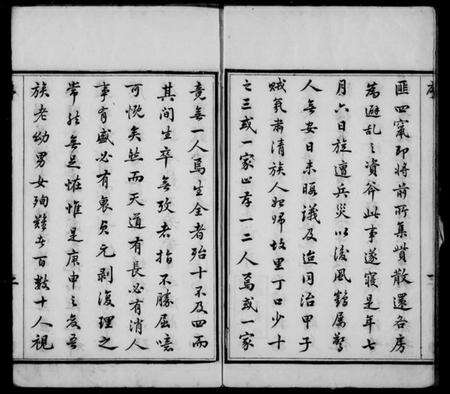 匪四竄即將前所集貲散還各房
為避乱之資斧此事遂寢是年七
月六日族遭兵災以後風鶴屬警
人無安日未暇議及迨同治甲子
賊氛肅清族人始歸故里丁口少十
之三或一家止存一二人焉或一家
竟無一人焉生全者殆十不及四而
其间生卒無攷者指不勝屈噫
可慨矣然而天道有長必有消人
事有盛必有衰貞元剥復理之
常然無足怪惟是庚申之変吾
族老幼男女殉難者百數十人視